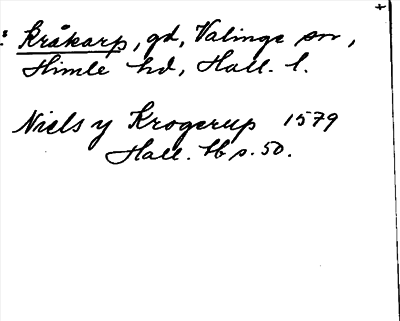 Kråkarp, gd, Valinge sn,
Himle hd, Hall. l.
Niels y Krogerup 1579
Hall. tb s. 50.